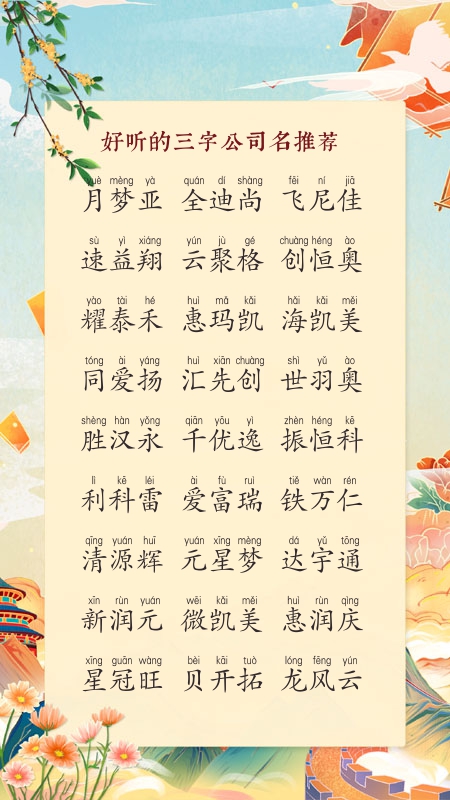 好听的三字公司名推荐
yuè mèng yà quán dí shàng fēi ní jiā
月梦亚 全迪尚 飞尼佳
sù yì xiáng yún jù gé chuàng héng ào
速益翔 云聚格 创恒奥
yào tài hé huì mǎ kǎi hǎi kǎi měi
耀泰禾 惠玛凯 海凯美
tóng ài yáng huì xiān chuàng shì yǔ ào
同爱扬 汇先创 世羽奥
shèng hàn yǒng qiān yōu yì zhèn héng kē
胜汉永 千优逸 振恒科
lì kē léi ài fù ruì tiě wàn rén
利科雷 爱富瑞 铁万仁
qīng yuán huī yuán xīng mèng dá yǔ tōng
清源辉 元星梦 达宇通
xīn rùn yuán wēi kǎi měi huì rùn qìng
新润元 微凯美 惠润庆
xīng guān wàng bèi kāi tuò lóng fēng yún
星冠旺 贝开拓 龙风云